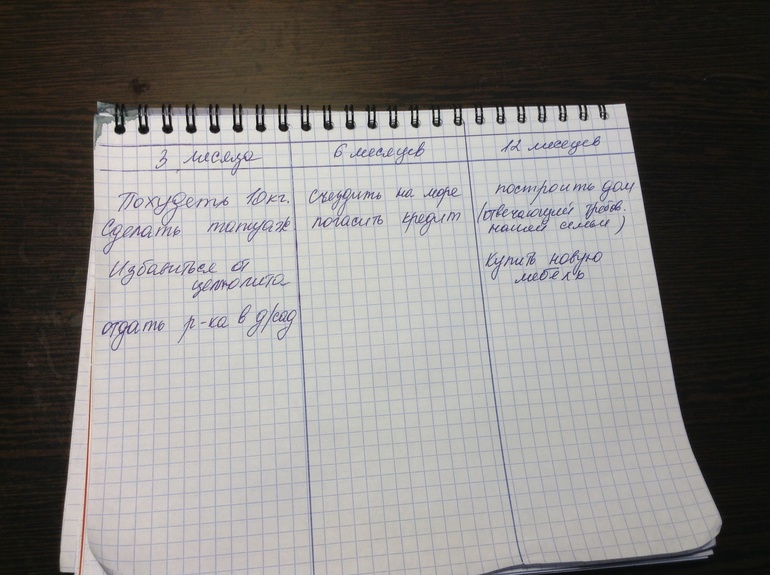 3 месяца
Похудеть 10кг.
Сделать татуаж.
Избавиться от
целлюлита
отдать р-ка в д/сад
6 месяцев
съездить на море
погасить кредит
12 месяцев
построить дом
(отвечающий требов.
нашей семьи)
купить новую
мебель